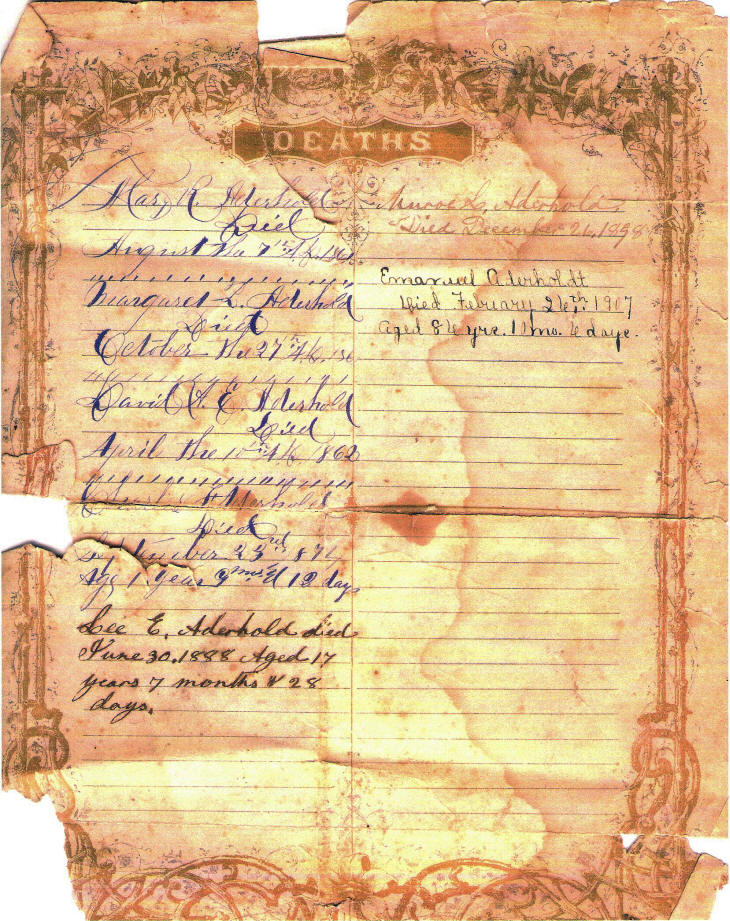 DEATHS
Mary R. Aderhold
Died
August the 7th A.D. 186
Margaret L. Aderhold
Died
October the 27th A.D. 186
David A. E. Aderhold
Died
April the 10th A.D. 1862
Aderhold
Died
September 23rd 187
Age 1 year 9 mos & 12 days
Lee E. Aderhold died
June 30, 1888 Aged 17
years 7 months & 28
days.
Aderhold
Died December 26, 1898
Emanuel Aderholdt
Died Febuary 26th, 1907
Aged 86 yrs. 11 mo. 6 days.